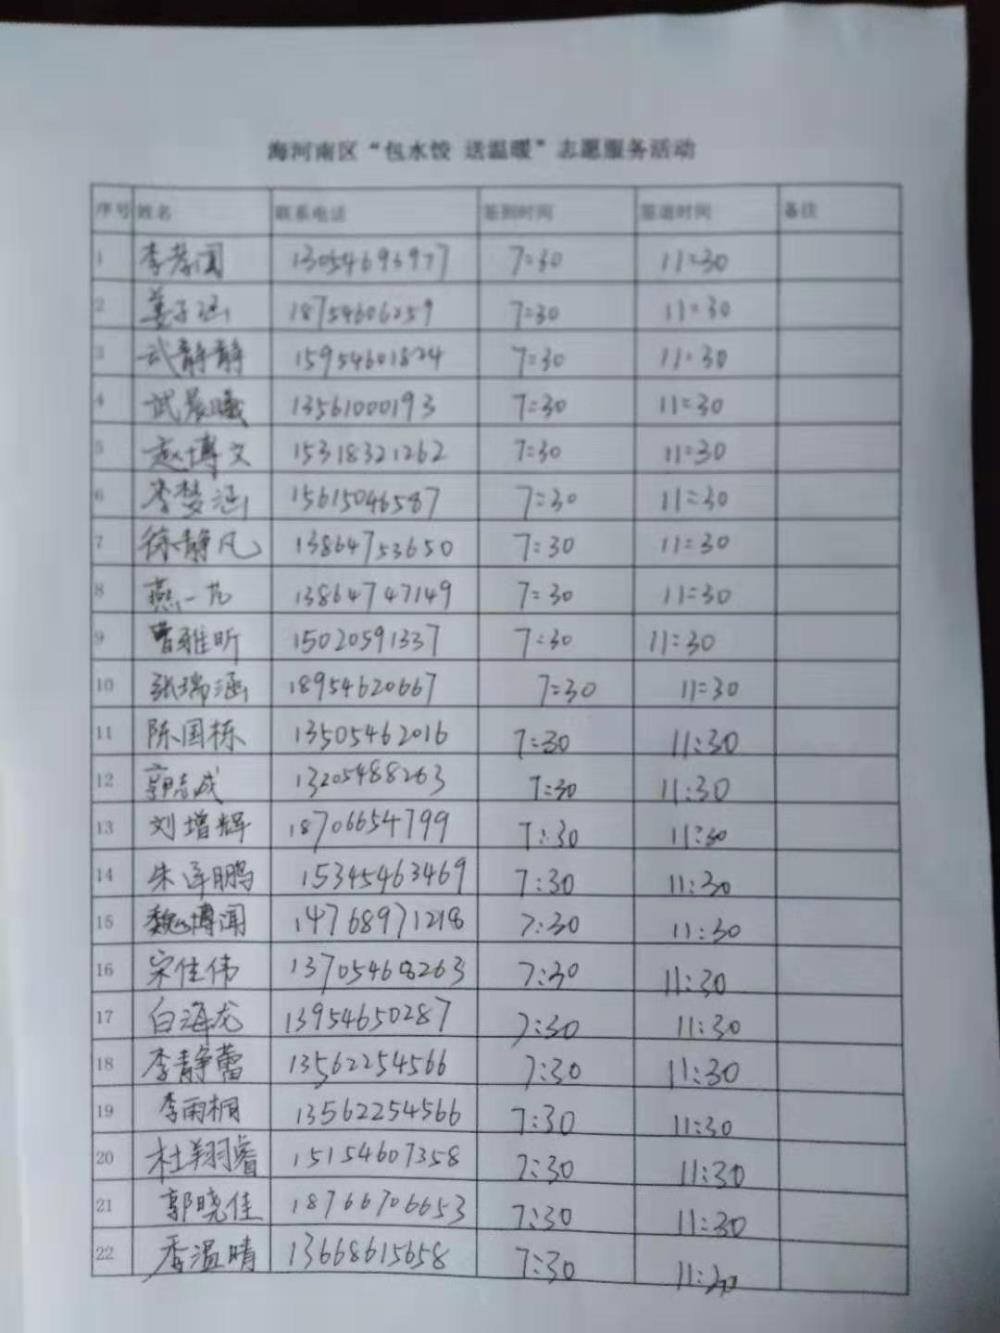 海河南区“包水饺 送温暖”志愿服务活动
序号 姓名 联系电话 签到时间 签退时间 备注
1 李孝国 13054693977 7:30 11:30
2 姜子涵 18754606259 7:30 11:30
3 武静静 15954601824 7:30 11:30
4 武晨曦 13561000193 7:30 11:30
5 赵博文 15318321262 7:30 11:30
6 李梦涵 15615046587 7:30 11:30
7 徐静凡 13864753650 7:30 11:30
8 燕一 13864747149 7:30 11:30
9 曹雅昕 15020591337 7:30 11:30
10 张瑞涵 18954620667 7:30 11:30
11 陈国栋 13505462016 7:30 11:30
12 郭志成 13205488263 7:30 11:30
13 刘增辉 18706654799 7:30 11:30
14 朱连鹏 15345463469 7:30 11:30
15 魏博闻 14768971218 7:30 11:30
16 宋佳伟 13705468263 7:30 11:30
17 白海龙 13954650287 7:30 11:30
18 李静蕾 13562254566 7:30 11:30
19 李雨桐 13562254566 7:30 11:30
20 杜翔睿 15154607358 7:30 11:30
21 郭晓佳 18766706653 7:30 11:30
22 李温晴 13668615658 7:30 11:30